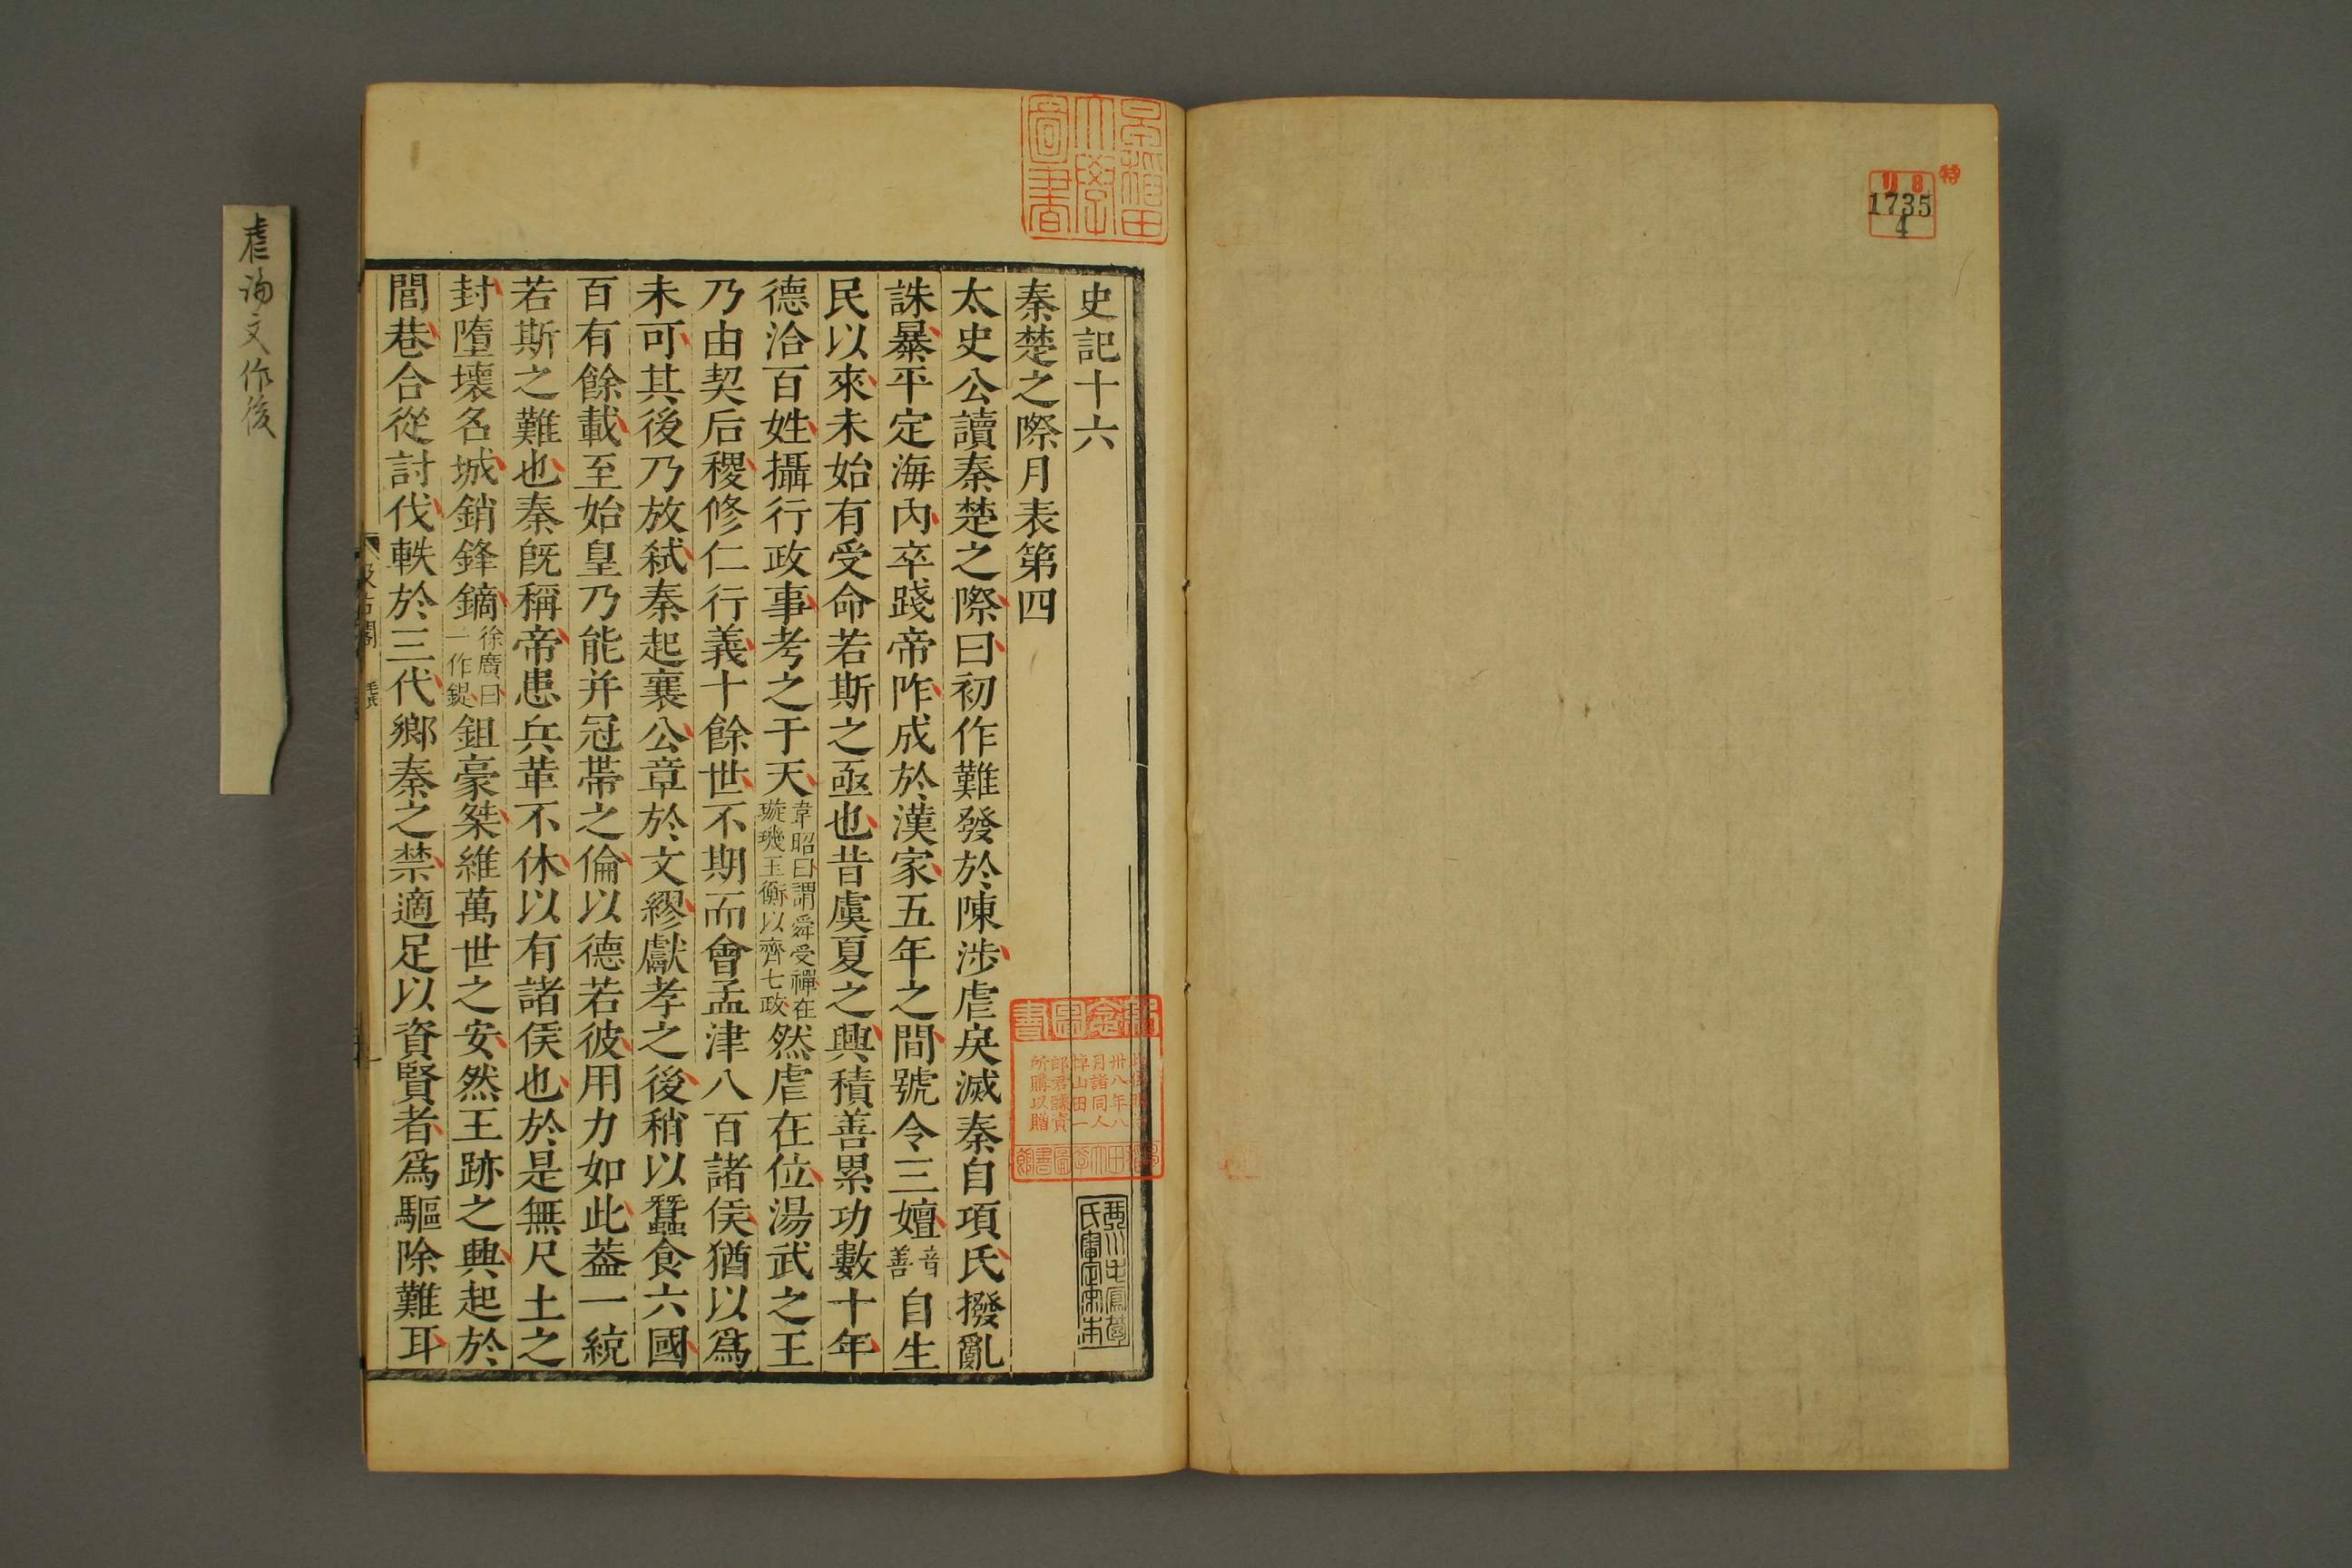 特
リ8
1735
4
早稲田
大學
圖書
史記十六
秦楚之際月表第四
太史公讀秦楚之際曰初作難發於陳涉虐戾滅秦自項氏撥亂
誅暴平定海內卒踐帝阼成於漢家五年之間號令三嬗音善自生
民以來未始有受命若斯之亟也昔虞夏之興積善累功數十年
德洽百姓攝行政事考之于天韋昭曰謂舜受禪在璇璣玉衡以齊七政然虐在位湯武之王
乃由契后稷修仁行義十餘世不期而會孟津八百諸侯猶以爲
未可其後乃放弒秦起襄公章於文繆獻孝之後稍以蠶食六國
百有餘載至始皇乃能并冠帶之倫以德若彼用力如此葢一統
若斯之難也秦旣稱帝患兵革不休以有諸侯也於是無尺土之
封墮壞名城銷鋒鏑徐廣曰一作鍉鉏豪桀維萬世之安然王跡之興起於
閭巷合從討伐軼於三代鄉秦之禁適足以資賢者爲驅除難耳
卅八年八
月諸同人
悼山田一
郎君醵資
所購以贈
氏審定宋本
汲古閣
毛氏
虐論文作後